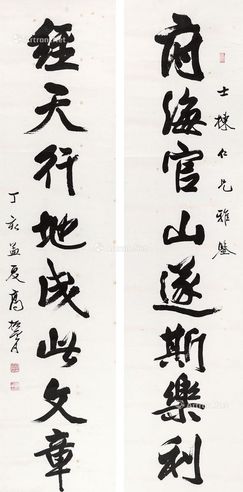 士棟仁兄雅鑒
府海官山遂斯樂利
經天行地成此文章
丁亥孟夏高振霄